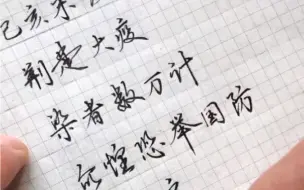 己亥末
荆楚大疫
染者数万计
众惶恐举国防